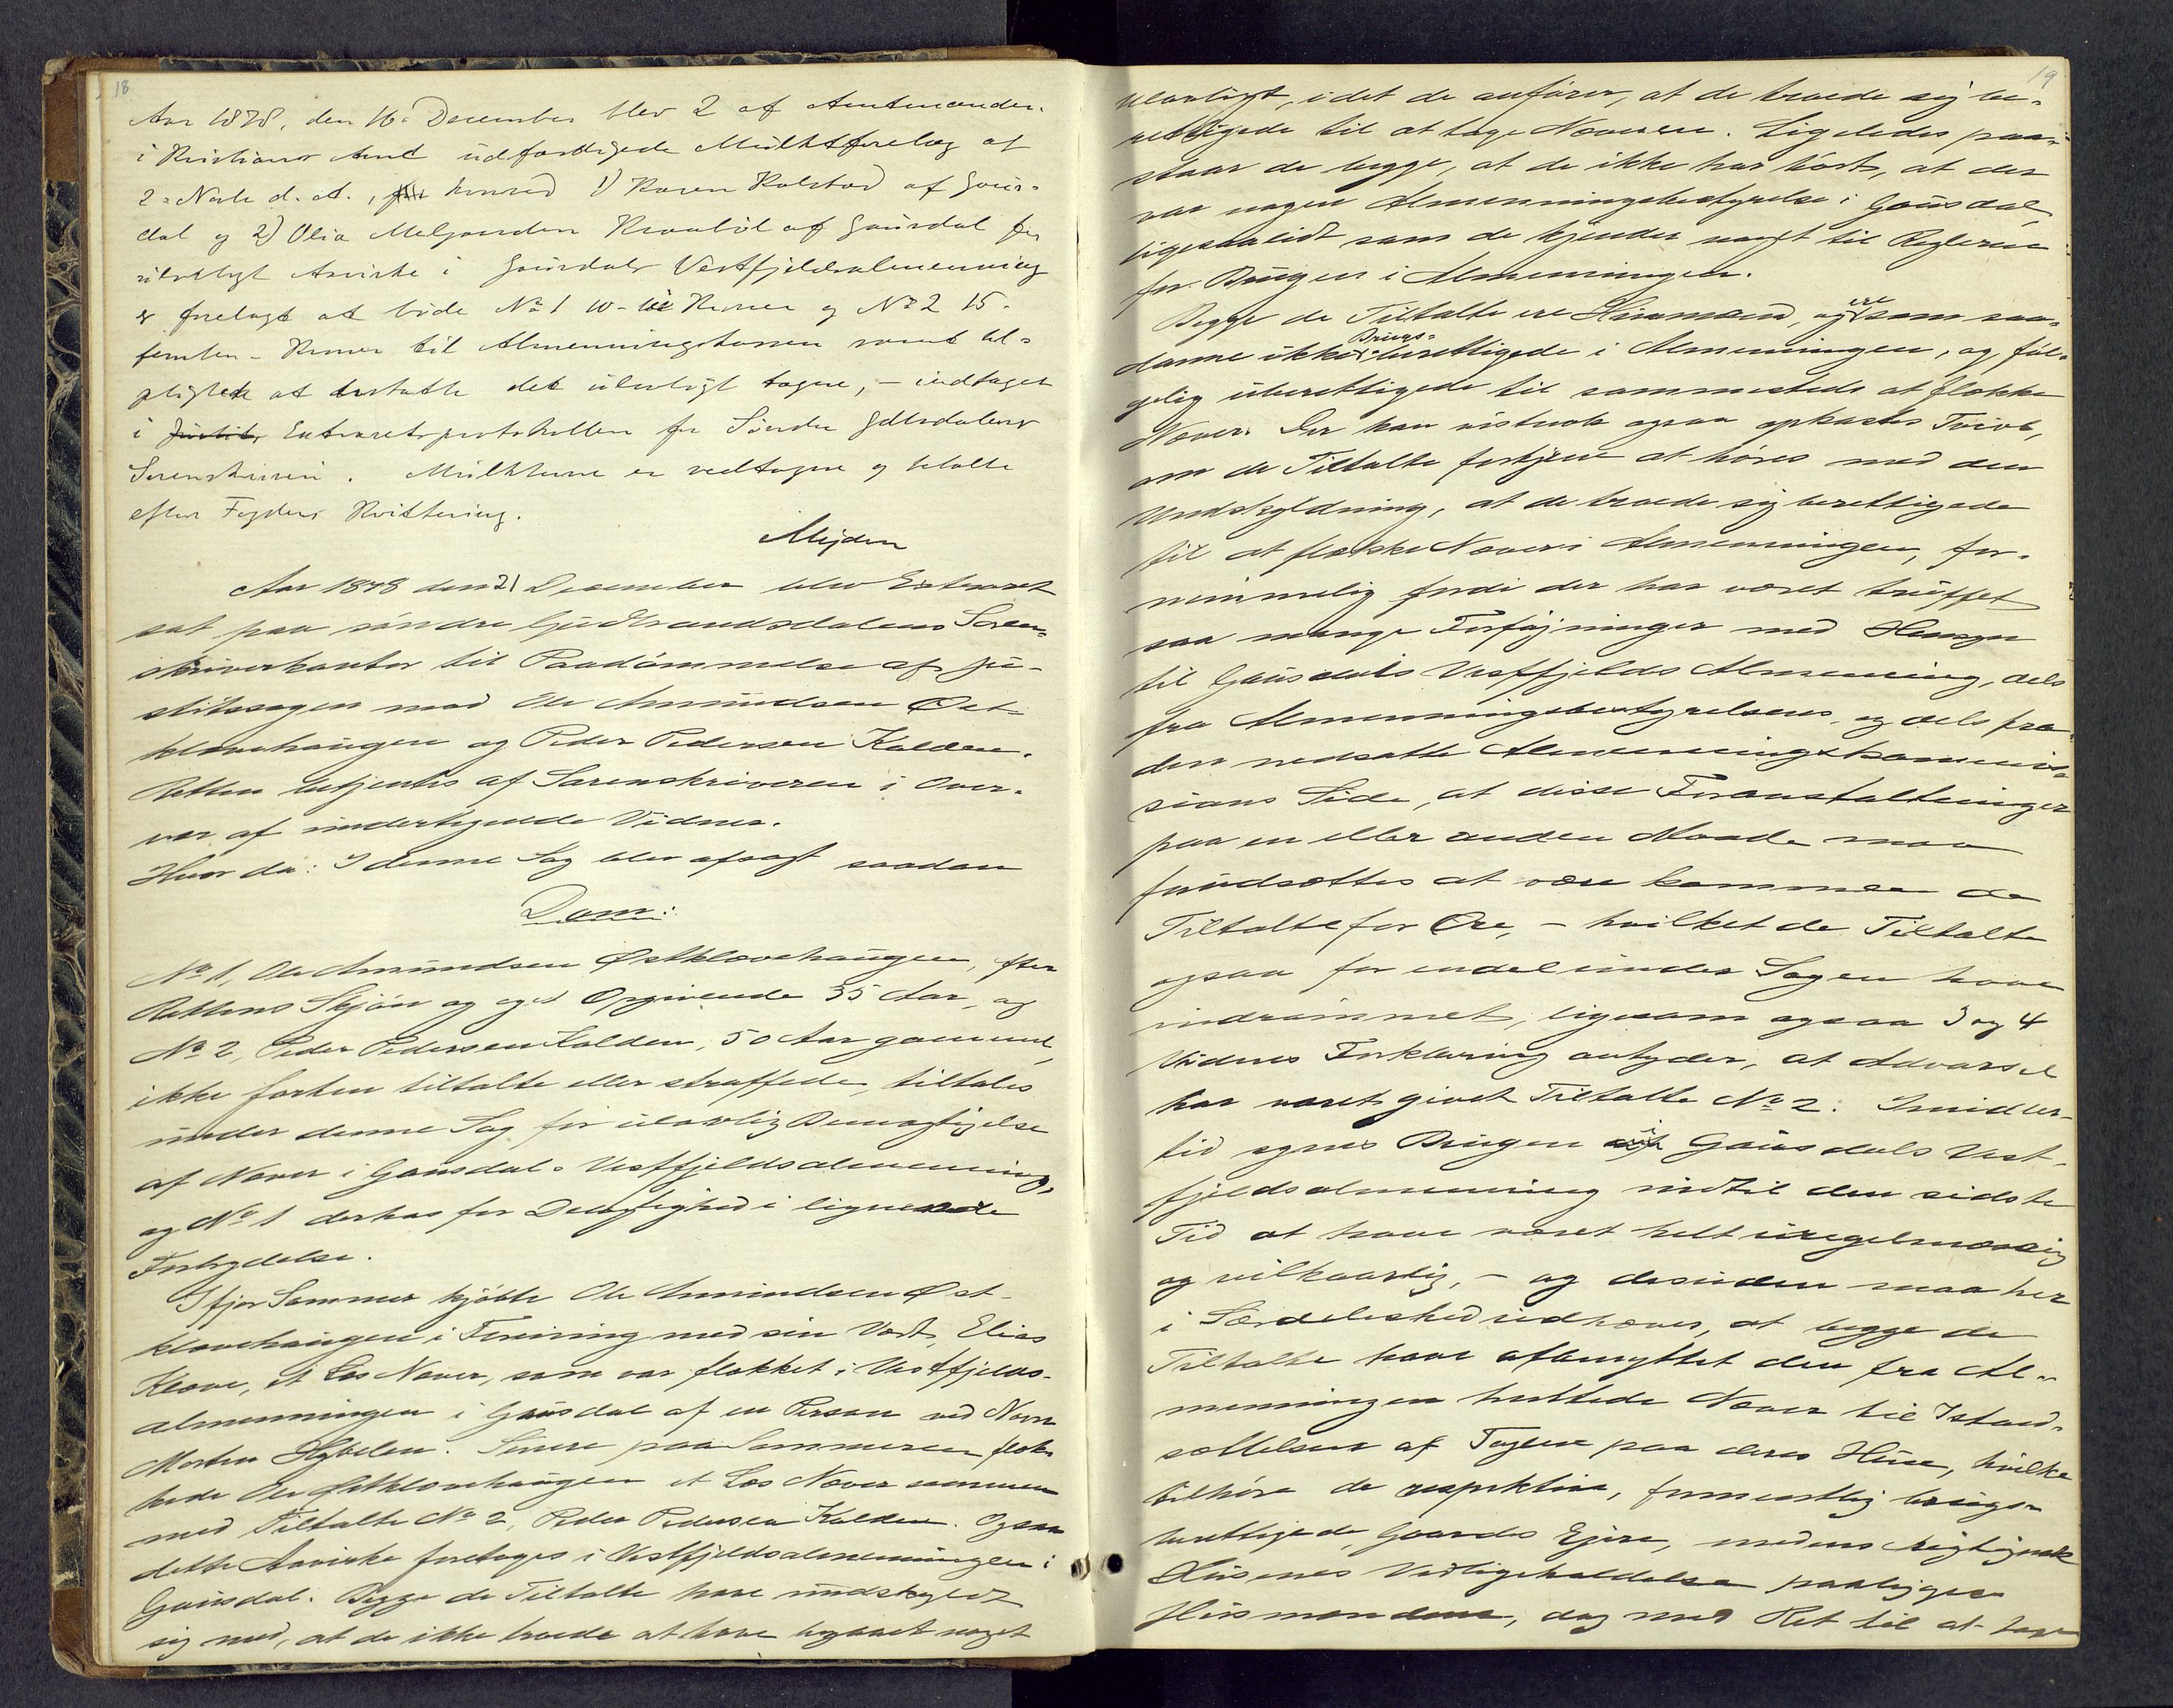 18
Aar 1878, den 16. December blev 2 af Amtmanden
i Kristians Amt udfærdigede Mulktforelæg af
2. Novbr d. A., hvorved 1) Karen Kolstad af Gaus-
dal og 2) Olia Kraabøl af Gausdal for
ulovligt Avirke i Gausdals Vestfjeldsalmenning
er forelagt at bøde No 1 10 - ti Kroner og No 2 15 -
femten - Kroner til Almenningskassen samt til-
pligtet at erstatte det ulovligt tagne, - indtaget
i Extraretsprotokollen for Søndre Gdbrdalens
Sorenskriveri. Mulkterne er vedtagne og betalte
efter Fogdens Kvittering.
Mejdell
Aar 1878 den 21 December blev Extraret
sat paa søndre Gudbrandsdalens Soren-
skriverkontor til Paadømmelse af Ju-
stitssagen mod Ole Amundsen Øst-
klovehaugen og Peder Pedersen Kalden.
Retten betjentes af Sorenskriveren i Over-
vær af undertegnede Vidner.
Hvor da: I denne Sag blev afsagt saadan
Dom:
No 1, Ole Amundsen Østklovehaugen, efter
Rettens Skjøn og eget Opgivende 35 Aar, og
No 2, Peder Pedersen Kalden, 50 Aar gammel,
ikke forhen tiltalte eller straffede, tiltales
under denne Sag for ulovlig Bemægtigelse
af Næver i Gausdals Vestfjeldsalmenning,
og No 1 derhos for Delagtighed i lignende
Forbrydelse.
Ifjor Sommer kjøbte Ole Amundsen Øst-
klovehaugen i Forening med sin Vært, Elias
Klove, et Læs Næver, som var flækket i Vestfjelds-
almenningen i Gausdal af en Person ved Navn
Morten. Senere paa Sommeren flæk-
kede Ole Østklovehaugen et Læs Næver sammen
med Tiltalte No 2, Peder Pedersen Kalden. Ogsaa
dette Aavirke foretoges i Vestfjeldsalmenningen i
Gausdal. Begge de Tiltalte have undskyldt
sig med, at de ikke troede at have begaaet noget
19
ulovligt, idet de anfører, at de troede sig be-
rettigede til at tage Næveren. Ligeledes paa-
staar de begge, at de ikke har hørt, at der
var nogen Almenningsbestyrelse i Gausdal,
ligesaalidt som de kjender noget til Reglerne
for Brugen i Almenningen.
Begge de Tiltalte ere Husmænd, og ere som saa-
danne ikke Brugs-berettigede i Almenningen, og føl-
gelig uberettigede til sammesteds at flække
Næver. Der kan vistnok ogsaa opkastes Tvivl,
om de Tiltalte fortjene at høres med den
Undskyldning, at de troede sig berettigede
til at flække Næver i Almenningen, for-
nemmelig fordi der har været truffet
saa mange Forføjninger med Hensyn
til Gausdals Vestfjelds Almenning, dels
fra Almenningsbestyrelsens, og dels fra
den nedsatte Almenningskommis-
sions Side, at disse Foranstaltninger
paa en eller anden Maade maa
forudsættes at være kommen de
Tiltalte for Øre, - hvilket de Tiltalte
ogsaa for endel under Sagen have
indrømmet, ligesom ogsaa 3 og 4
Vidnes Forklaring antyder, at Advarsel
har været givet Tiltalte No 2. Imidler-
tid synes Brugen i Gausdals Vest-
fjeldsalmenning indtil den sidste
Tid at have været helt uregelmæssig
og vilkaarlig, - og desuden maa her
i Særdeleshed udhæves, at begge de
Tiltalte have afbenyttet den fra Al-
menningen hentede Næver til Istand-
sættelsen af Tagene paa deres Huse, hvilke
tilhøre de respektive, formentlig brugs-
berettigede, Gaardes Ejere, medens rigtignok
Husenes Vedligeholdelse paaligger
Husmændene, dog med Ret til at tage